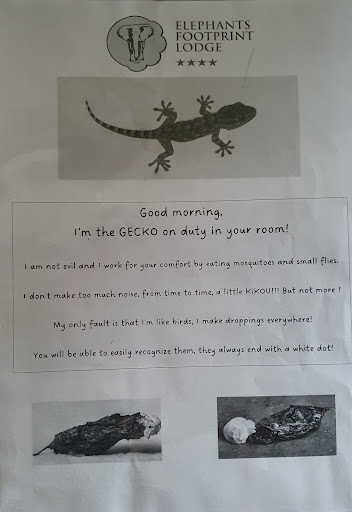 ELEPHANTS
FOOTPRINT
LODGE
★★★★
Good morning,
I'm the GECKO on duty in your room!
I am not evil and I work for your comfort by eating mosquitoes and small flies.
I don't make too much noise, from time to time, a little KIKOU!!! But not more !
My only fault is that I'm like birds, I make droppings everywhere!
You will be able to easily recognize them, they always end with a white dot!